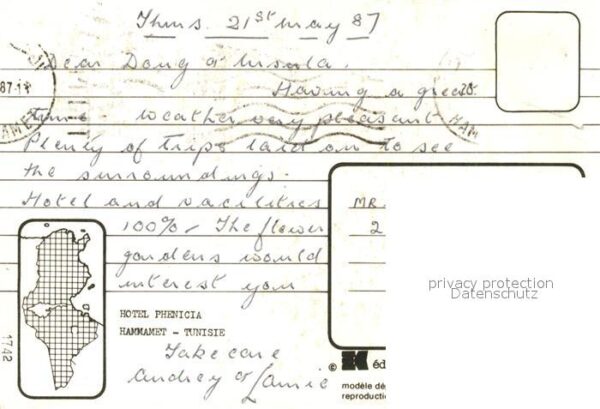 Thurs. 21st May 87
Dear Doug & Ursula.
Having a great
time weather very pleasant
Plenty of trips laid on to see
the surroundings.
Hotel and vacilities
100% - The flower
gardens would
interest you
HOTEL PHENICIA
HAMMAMET - TUNISIE
Take care
Audrey &
1742
87-18
28
HAM
MR
2
privacy protection
Datenschutz
© éd
modèle dé
reproducti